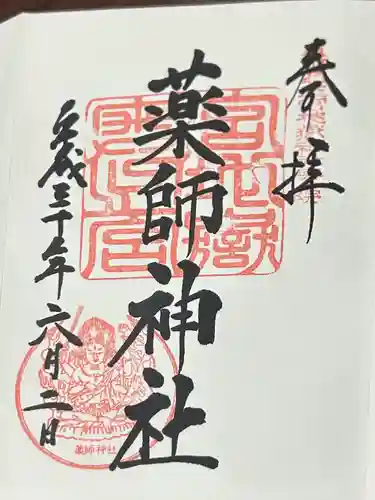 奉拝
薬師神社
平成三十年六月二日
薬師神社